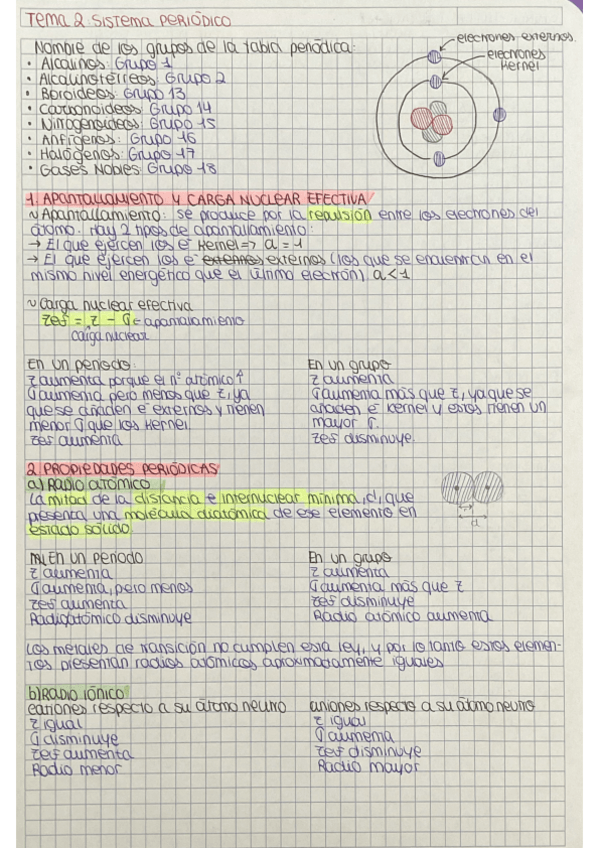 TEMA 2: SISTEMA PERIÓDICO
Nombre de los grupos de la tabla periódica:
electrones externos.
electrones Kernel
• Alcalinos: Grupo 1
• Alcalinotérreos: Grupo 2
• Boroideos: Grupo 13
• Carbonoideos: Grupo 14
• Nitrogenoideos: Grupo 15
• Anfígenos: Grupo 16
• Halógenos: Grupo 17
• Gases Nobles: Grupo 18
1. APANTALLAMIENTO Y CARGA NUCLEAR EFECTIVA
~ Apantallamiento: se produce por la repulsión entre los electrones del
átomo. Hay 2 tipos de apantallamiento:
→ El que ejercen los e⁻ Kernel => a = 1
→ El que ejercen los e⁻ externos externos (los que se encuentran en el
mismo nivel energético que el último electrón) a < 1
~ Carga nuclear efectiva
Zef = Z - σ ← apantallamiento
carga nuclear
En un periodo:
Z aumenta porque el nº atómico ↑
σ aumenta pero menos que Z, ya
que se añaden e⁻ externos y tienen
menor σ que los Kernel.
Zef aumenta
En un grupo
Z aumenta
σ aumenta más que Z, ya que se
añaden e⁻ Kernel y estos tienen un
mayor σ.
Zef disminuye.
2. PROPIEDADES PERIÓDICAS
a) RADIO ATÓMICO
La mitad de la distancia e internuclear mínima, d, que
presenta una molécula diatómica de ese elemento en
estado sólido.
d
En un periodo
Z aumenta
σ aumenta, pero menos
Zef aumenta
Radio atómico disminuye
En un grupo
Z aumenta
σ aumenta más que Z
Zef disminuye
Radio atómico aumenta
Los metales de transición no cumplen esta ley, y por lo tanto estos elemen-
tos presentan radios atómicos aproximadamente iguales
b) RADIO IÓNICO
cationes respecto a su átomo neutro
Z igual
σ disminuye
Zef aumenta
Radio menor
aniones respecto a su átomo neutro
Z igual
σ aumenta
Zef disminuye
Radio mayor